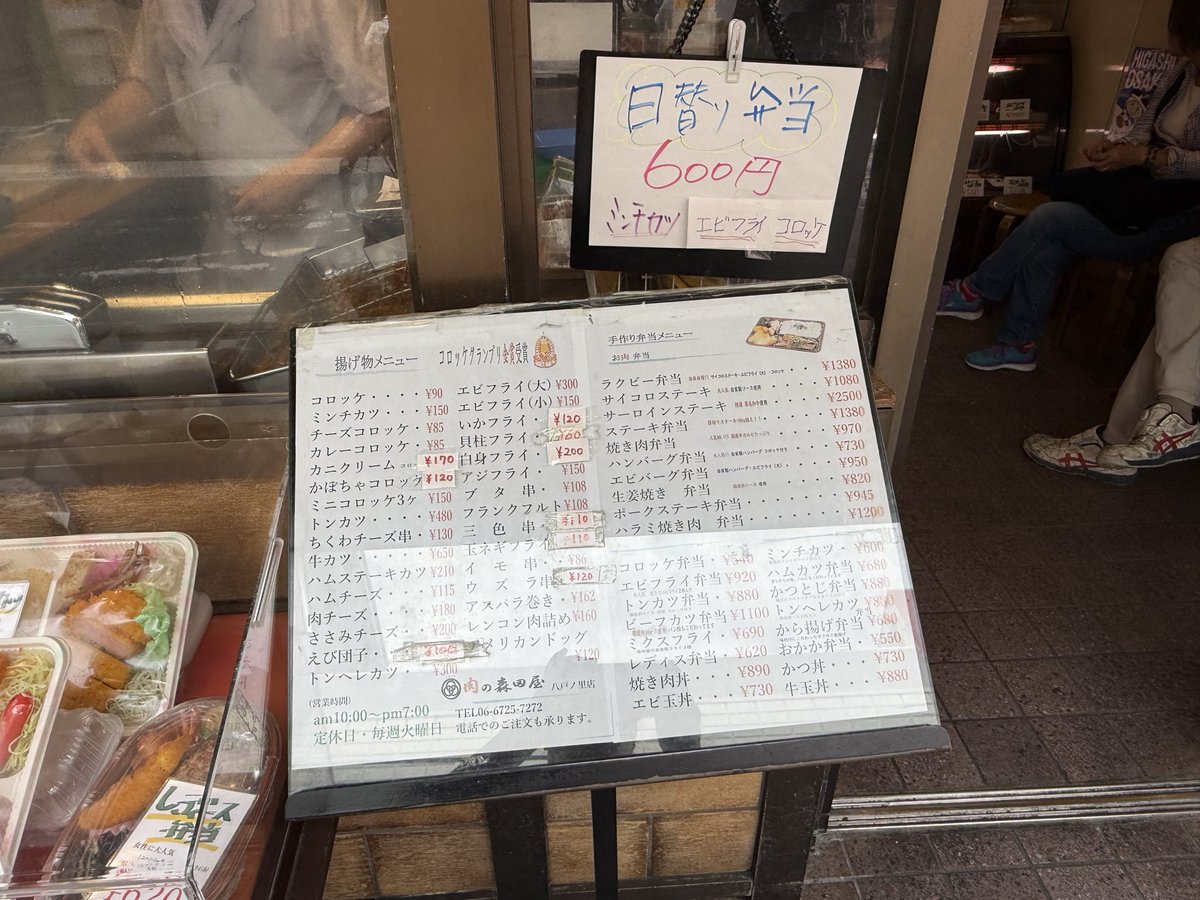 日替り弁当
600円
ミンチカツ エビフライ コロッケ
HIGASHI
OSAKA
揚げ物メニュー
コロッケグランプリ金賞受賞
コロッケ・・・・¥90
ミンチカツ・・・¥150
チーズコロッケ・¥85
カレーコロッケ・¥85
カニクリーム ¥170
かぼちゃコロッケ ¥120
ミニコロッケ3ヶ ¥150
トンカツ・・・・¥480
ちくわチーズ串・¥130
牛カツ・・・・・¥650
ハムステーキカツ ¥210
ハムチーズ・・・¥115
肉チーズ・・・・¥180
ささみチーズ・・¥200
えび団子・・ ¥100
トンヘレカツ・・¥300
エビフライ(大) ¥300
エビフライ(小) ¥150
いかフライ・ ¥120
貝柱フライ・ ¥60
白身フライ・ ¥200
アジフライ・・¥150
ブタ串・・¥108
フランクフルト ¥108
三色串・ ¥110
玉ネギフライ ¥110
イモ串・・¥86
ウズラ串 ¥120
アスパラ巻き・¥162
レンコン肉詰め ¥160
アメリカンドッグ
¥120
(営業時間)
am10:00〜pm7:00
定休日・毎週火曜日
肉の森田屋 八戸ノ里店
TEL06-6725-7272
電話でのご注文も承ります。
手作り弁当メニュー
お肉 弁当
ラクビー弁当 ¥1380
サイコロステーキ ¥1080
サーロインステーキ ¥2500
ステーキ 弁当 ¥1380
焼き肉弁当 ¥970
ハンバーグ弁当 ¥730
エビバーグ弁当 ¥950
生姜焼き 弁当 ¥820
ポークステーキ弁当 ¥945
ハラミ焼き肉 弁当・ ¥1200
コロッケ弁当・・¥540
エビフライ弁当 ¥920
トンカツ弁当・・¥880
ビーフカツ弁当 ¥1100
ミクスフライ・・¥690
レディス弁当・・¥620
焼き肉丼・・・・¥890
エビ玉丼・・・・¥730
ミンチカツ・・¥600
ハムカツ弁当・¥680
かつとじ弁当・¥880
トンヘレカツ
から揚げ弁当・¥680
おかか弁当・・¥550
かつ丼・・・・¥730
牛玉丼・・・・¥880
レディース
弁当
女性に大人気
¥620